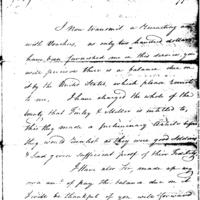 I Now transmit a Recruiting acct
with Vouchers, as only two hundred dollars
have been furnished me on this service, you
will perceive there is a balance due me
by the United States, which please remit
to me, I have charged the whole of the
bounty that Finley & Miller is entitled to,
tho they made a preliminary before
they would enlist as they were good Soldiers
& had given sufficient proof of their
I have also Sir, made up my
own acct of pay the balance due me
I will be thankful if you will forward